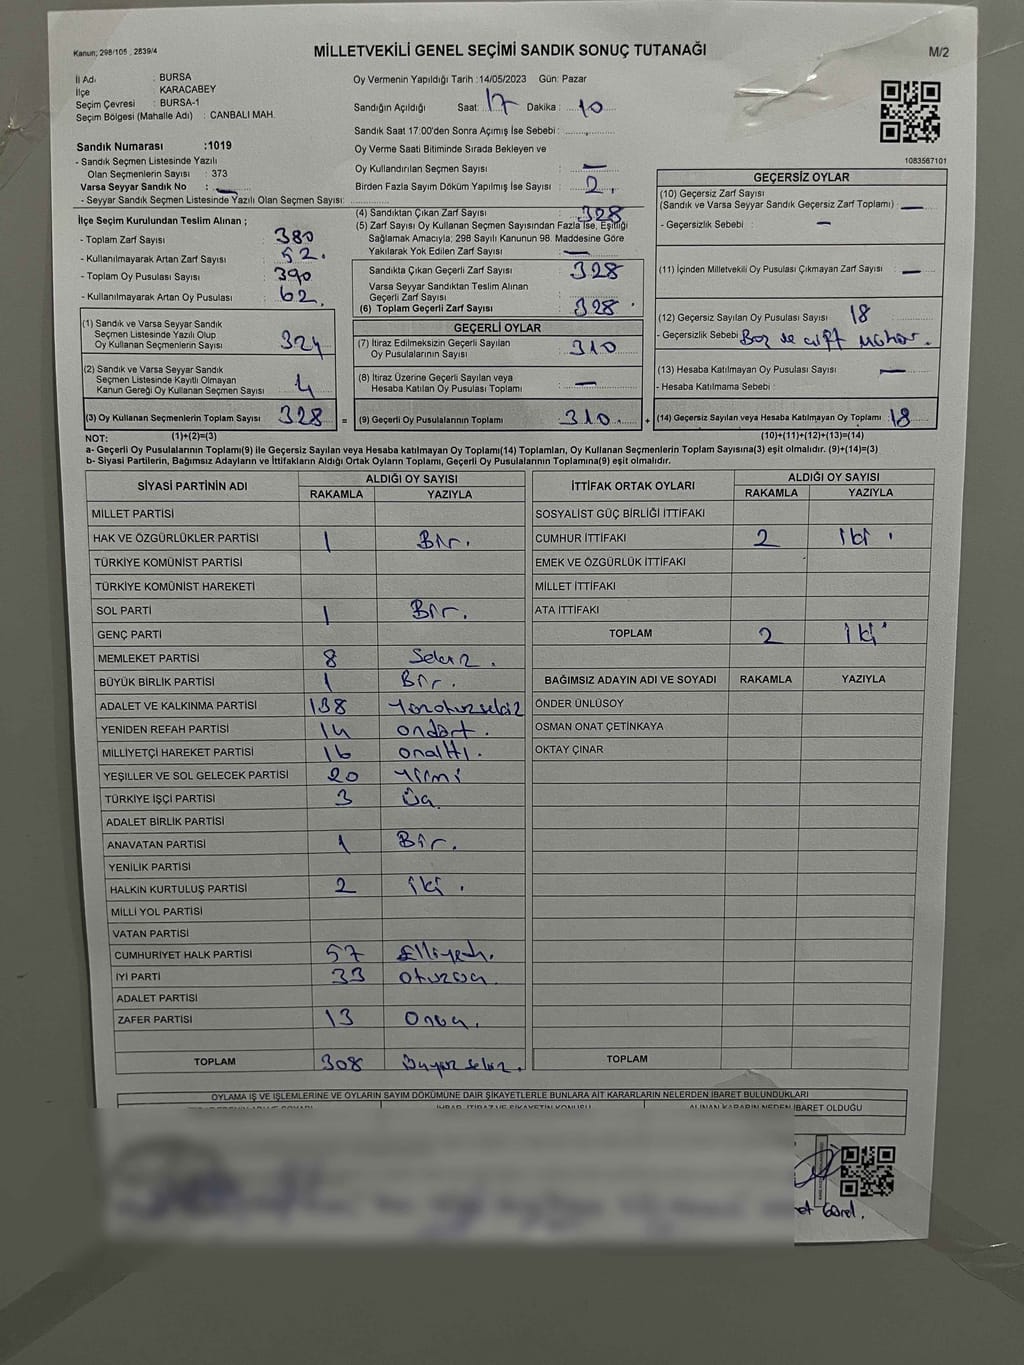 Kanun; 298/105 , 2839/4
MİLLETVEKİLİ GENEL SEÇİMİ SANDIK SONUÇ TUTANAĞI
M/2
İl Adı : BURSA
İlçe : KARACABEY
Seçim Çevresi : BURSA-1
Seçim Bölgesi (Mahalle Adı) : CANBALI MAH.
Sandık Numarası :1019
- Sandık Seçmen Listesinde Yazılı
Olan Seçmenlerin Sayısı : 373
Varsa Seyyar Sandık No : —
- Seyyar Sandık Seçmen Listesinde Yazılı Olan Seçmen Sayısı:
Oy Vermenin Yapıldığı Tarih :14/05/2023 Gün: Pazar
Sandığın Açıldığı Saat: 17 Dakika : 10
Sandık Saat 17:00'den Sonra Açımış İse Sebebi :
Oy Verme Saati Bitiminde Sırada Bekleyen ve
Oy Kullandırılan Seçmen Sayısı : —
Birden Fazla Sayım Döküm Yapılmış İse Sayısı : 2.
1083567101
İlçe Seçim Kurulundan Teslim Alınan ;
- Toplam Zarf Sayısı : 380
- Kullanılmayarak Artan Zarf Sayısı : 52.
- Toplam Oy Pusulası Sayısı : 390
- Kullanılmayarak Artan Oy Pusulası : 62.
(1) Sandık ve Varsa Seyyar Sandık
Seçmen Listesinde Yazılı Olup
Oy Kullanan Seçmenlerin Sayısı 324
(2) Sandık ve Varsa Seyyar Sandık
Seçmen Listesinde Kayıtlı Olmayan
Kanun Gereği Oy Kullanan Seçmen Sayısı 4
(3) Oy Kullanan Seçmenlerin Toplam Sayısı 328 =
(4) Sandıktan Çıkan Zarf Sayısı : 328
(5) Zarf Sayısı Oy Kullanan Seçmen Sayısından Fazla İse, Eşitliği
Sağlamak Amacıyla; 298 Sayılı Kanunun 98. Maddesine Göre
Yakılarak Yok Edilen Zarf Sayısı : —
Sandıkta Çıkan Geçerli Zarf Sayısı 328
Varsa Seyyar Sandıktan Teslim Alınan
Geçerli Zarf Sayısı
(6) Toplam Geçerli Zarf Sayısı : 328.
GEÇERLİ OYLAR
(7) İtiraz Edilmeksizin Geçerli Sayılan
Oy Pusulalarının Sayısı : 310
(8) İtiraz Üzerine Geçerli Sayılan veya
Hesaba Katılan Oy Pusulası Toplamı : —
(9) Geçerli Oy Pusulalarının Toplamı : 310 +
GEÇERSİZ OYLAR
(10) Geçersiz Zarf Sayısı
(Sandık ve Varsa Seyyar Sandık Geçersiz Zarf Toplamı) : —
- Geçersizlik Sebebi : —
(11) İçinden Milletvekili Oy Pusulası Çıkmayan Zarf Sayısı : —
(12) Geçersiz Sayılan Oy Pusulası Sayısı : 18
- Geçersizlik Sebebi : Boş ve çift mühür.
(13) Hesaba Katılmayan Oy Pusulası Sayısı : —
- Hesaba Katılmama Sebebi :
(14) Geçersiz Sayılan veya Hesaba Katılmayan Oy Toplamı : 18
NOT: (1)+(2)=(3) (10)+(11)+(12)+(13)=(14)
a- Geçerli Oy Pusulalarının Toplamı(9) ile Geçersiz Sayılan veya Hesaba katılmayan Oy Toplamı(14) Toplamları, Oy Kullanan Seçmenlerin Toplam Sayısına(3) eşit olmalıdır. (9)+(14)=(3)
b- Siyasi Partilerin, Bağımsız Adayların ve İttifakların Aldığı Ortak Oyların Toplamı, Geçerli Oy Pusulalarının Toplamına(9) eşit olmalıdır.
SİYASİ PARTİNİN ADI ALDIĞI OY SAYISI
RAKAMLA YAZIYLA
MİLLET PARTİSİ
HAK VE ÖZGÜRLÜKLER PARTİSİ 1 Bir.
TÜRKİYE KOMÜNİST PARTİSİ
TÜRKİYE KOMÜNİST HAREKETİ
SOL PARTİ 1 Bir.
GENÇ PARTİ
MEMLEKET PARTİSİ 8 Sekiz.
BÜYÜK BİRLİK PARTİSİ 1 Bir.
ADALET VE KALKINMA PARTİSİ 138 Yüzotuzsekiz
YENİDEN REFAH PARTİSİ 14 ondört.
MİLLİYETÇİ HAREKET PARTİSİ 16 onaltı.
YEŞİLLER VE SOL GELECEK PARTİSİ 20 Yirmi
TÜRKİYE İŞÇİ PARTİSİ 3 Üç.
ADALET BİRLİK PARTİSİ
ANAVATAN PARTİSİ 1 Bir.
YENİLİK PARTİSİ
HALKIN KURTULUŞ PARTİSİ 2 iki.
MİLLİ YOL PARTİSİ
VATAN PARTİSİ
CUMHURİYET HALK PARTİSİ 57 Elliyedi.
İYİ PARTİ 33 otuzüç.
ADALET PARTİSİ
ZAFER PARTİSİ 13 Onüç.
TOPLAM 308 Üçyüz sekiz.
İTTİFAK ORTAK OYLARI ALDIĞI OY SAYISI
RAKAMLA YAZIYLA
SOSYALİST GÜÇ BİRLİĞİ İTTİFAKI
CUMHUR İTTİFAKI 2 iki.
EMEK VE ÖZGÜRLÜK İTTİFAKI
MİLLET İTTİFAKI
ATA İTTİFAKI
TOPLAM 2 iki
BAĞIMSIZ ADAYIN ADI VE SOYADI RAKAMLA YAZIYLA
ÖNDER ÜNLÜSOY
OSMAN ONAT ÇETİNKAYA
OKTAY ÇINAR
TOPLAM
OYLAMA İŞ VE İŞLEMLERİNE VE OYLARIN SAYIM DÖKÜMÜNE DAİR ŞİKAYETLERLE BUNLARA AİT KARARLARIN NELERDEN İBARET BULUNDUKLARI
İHBAR, İTİRAZ VE ŞİKAYETİN KONUSU
ALINAN KARARIN NEDEN İBARET OLDUĞU